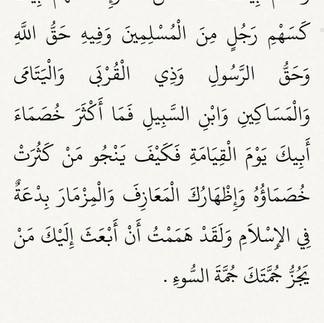 كَسَهْمِ رَجُلٍ مِنَ الْمُسْلِمِينَ وَفِيهِ حَقُّ اللَّهِ
وَحَقُّ الرَّسُولِ وَذِي الْقُرْبَى وَالْيَتَامَى
وَالْمَسَاكِينِ وَابْنِ السَّبِيلِ فَمَا أَكْثَرَ خُصَمَاءَ
أَبِيكَ يَوْمَ الْقِيَامَةِ فَكَيْفَ يَنْجُو مَنْ كَثُرَتْ
خُصَمَاؤُهُ وَإِظْهَارُكَ الْمَعَازِفَ وَالْمِزْمَارَ بِدْعَةٌ
فِي الإِسْلاَمِ وَلَقَدْ هَمَمْتُ أَنْ أَبْعَثَ إِلَيْكَ مَنْ
يَجُزُّ جُمَّتَكَ جُمَّةَ السُّوءِ .